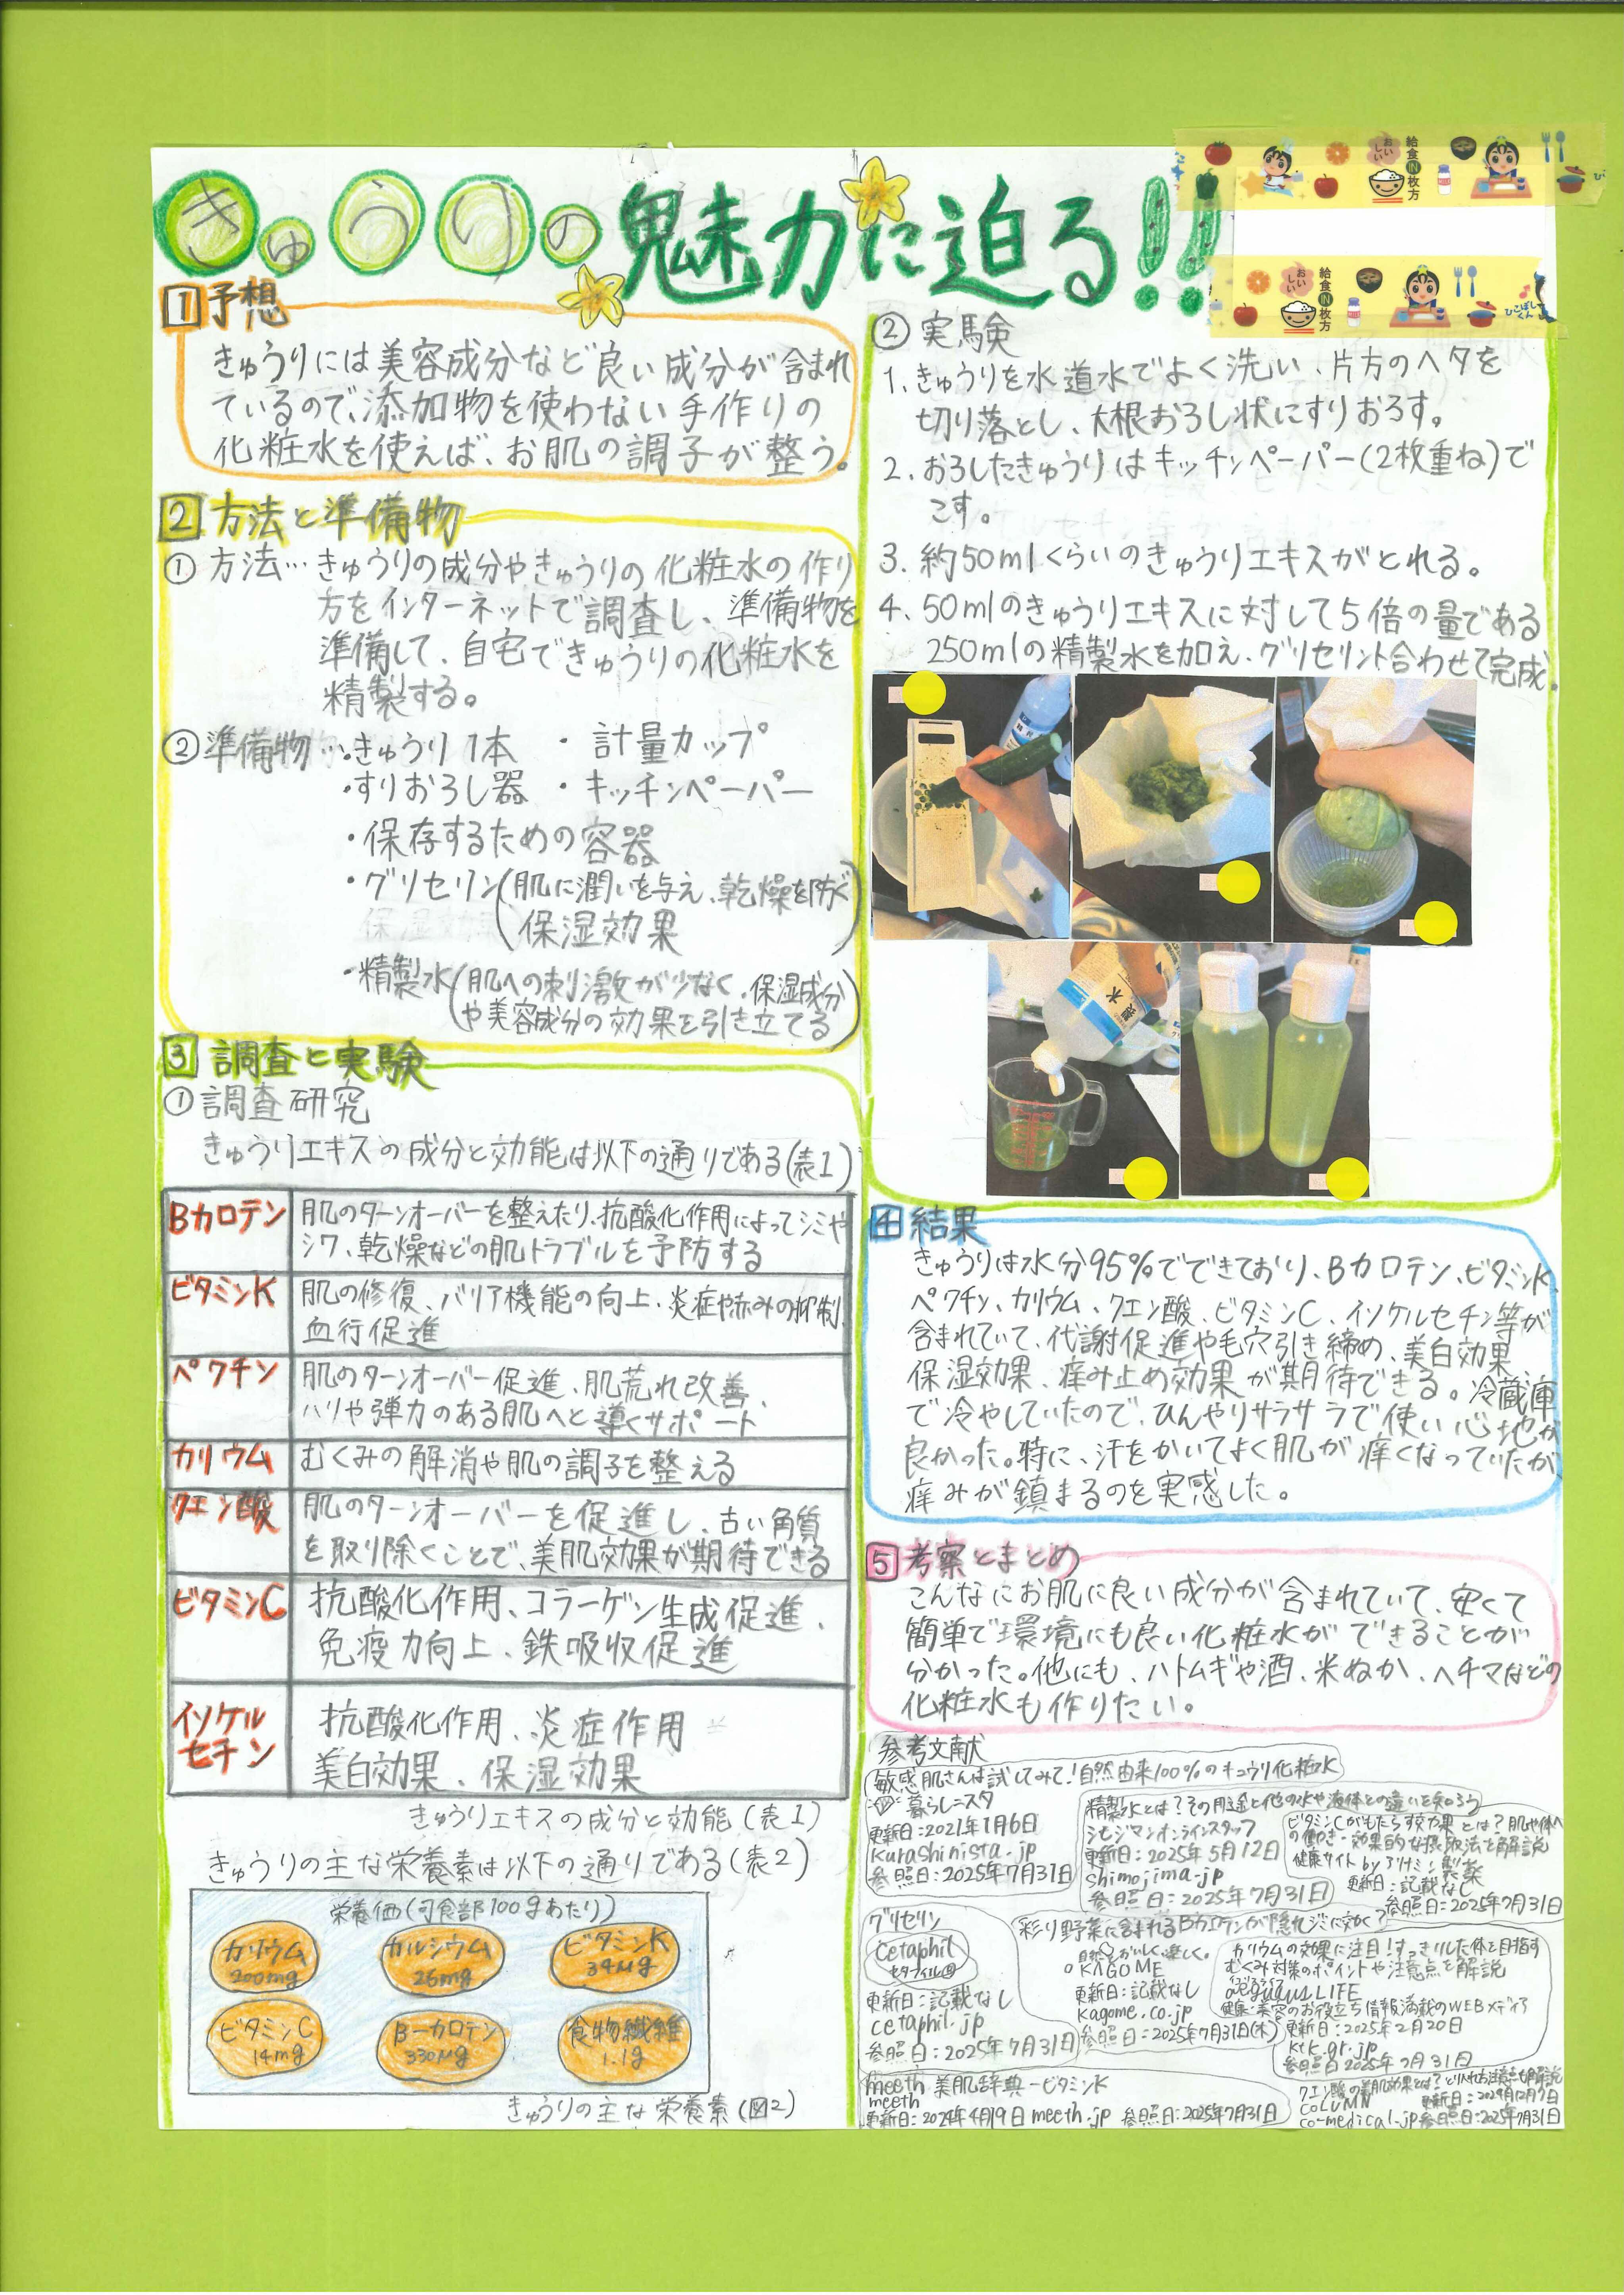 きゅうりの魅力に迫る!!
おいしい 給食IN枚方
おいしい 給食IN枚方
ひこぼしくん
1 予想
きゅうりには美容成分など良い成分が含まれ
ているので、添加物を使わない手作りの
化粧水を使えば、お肌の調子が整う。
2 方法と準備物
① 方法…きゅうりの成分やきゅうりの化粧水の作り
方をインターネットで調査し、準備物を
準備して、自宅できゅうりの化粧水を
精製する。
②準備物…・きゅうり1本 ・計量カップ
・すりおろし器 ・キッチンペーパー
・保存するための容器
・グリセリン(肌に潤いを与え、乾燥を防ぐ
保湿効果)
・精製水(肌への刺激が少なく、保湿成分
や美容成分の効果を引き立てる)
3 調査と実験
①調査研究
きゅうりエキスの成分と効能は以下の通りである(表1)
Bカロテン 肌のターンオーバーを整えたり、抗酸化作用によってシミや
シワ、乾燥などの肌トラブルを予防する
ビタミンK 肌の修復、バリア機能の向上、炎症や赤みの抑制、
血行促進
ペクチン 肌のターンオーバー促進、肌荒れ改善、
ハリや弾力のある肌へと導くサポート
カリウム むくみの解消や肌の調子を整える
クエン酸 肌のターンオーバーを促進し、古い角質
を取り除くことで、美肌効果が期待できる
ビタミンC 抗酸化作用、コラーゲン生成促進、
免疫力向上、鉄吸収促進
イソケル
セチン
抗酸化作用、炎症作用
美白効果、保湿効果
きゅうりエキスの成分と効能(表1)
きゅうりの主な栄養素は以下の通りである(表2)
栄養価(可食部100gあたり)
カリウム
200mg
カルシウム
26mg
ビタミンK
34μg
ビタミンC
14mg
β-カロテン
330μg
食物繊維
1.1g
きゅうりの主な栄養素(図2)
② 実験
1. きゅうりを水道水でよく洗い、片方のヘタを
切り落とし、大根おろし状にすりおろす。
2. おろしたきゅうりはキッチンペーパー(2枚重ね)で
こす。
3. 約50mlくらいのきゅうりエキスがとれる。
4. 50mlのきゅうりエキスに対して5倍の量である
250mlの精製水を加え、グリセリンと合わせて完成。
4 結果
きゅうりは水分95%でできており、Bカロテン、ビタミンK、
ペクチン、カリウム、クエン酸、ビタミンC、イソケルセチン等が
含まれていて、代謝促進や毛穴引き締め、美白効果、
保湿効果、痒み止め効果が期待できる。冷蔵庫
で冷やしていたので、ひんやりサラサラで使い心地が
良かった。特に、汗をかいてよく肌が痒くなっていたが、
痒みが鎮まるのを実感した。
5 考察とまとめ
こんなにお肌に良い成分が含まれていて、安くて
簡単で環境にも良い化粧水ができることが
分かった。他にも、ハトムギや酒、米ぬか、ヘチマなどの
化粧水も作りたい。
参考文献
敏感肌さんは試してみて!自然由来100%のキュウリ化粧水
暮らしニスタ
更新日:2021年1月6日
kurashinista.jp
参照日:2025年7月31日
精製水とは?その用途と他の水や液体との違いを知ろう
シモジマオンラインスタッフ
更新日:2025年5月12日
shimojima.jp
参照日:2025年7月31日
ビタミンCがもたらす効果とは?肌や体へ
の働き・効果的な摂取法を解説
健康サイト by アリナミン製薬
更新日:記載なし
参照日:2025年7月31日
グリセリン
Cetaphil
セタフィル
更新日:記載なし
cetaphil.jp
参照日:2025年7月31日
彩り野菜に含まれるBカロテンが隠れジミに効く?
自然をおいしく、楽しく。
KAGOME
更新日:記載なし
kagome.co.jp
参照日:2025年7月31日(木)
カリウムの効果に注目!すっきりした体を目指す
むくみ対策のポイントや注意点を解説
LIFE
健康・美容のお役立ち情報満載のWEBメディア
更新日:2025年2月20日
ktk.gr.jp
参照日2025年7月31日
meeth 美肌辞典-ビタミンK
meeth
更新日:2024年4月19日 meeth.jp 参照日:2025年7月31日
クエン酸の美肌効果とは?とり入れ方注意点も解説
COLUMN 更新日:2024年12月7日
co-medical.jp 参照日:2025年7月31日